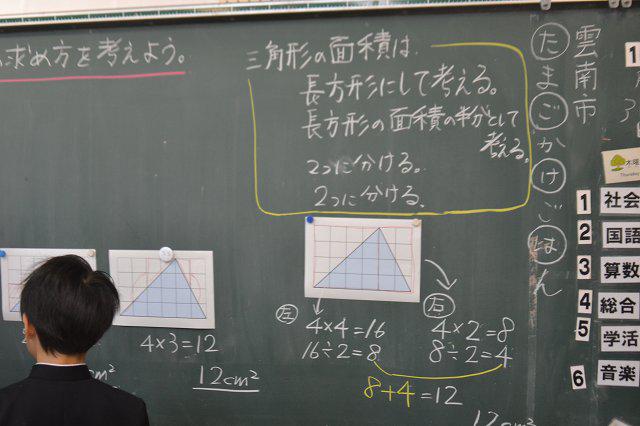 求め方を考えよう。
三角形の面積は、
長方形にして考える。
長方形の面積の半分として
考える。
2つに分ける。
2つに分ける。
4×3=12
12cm²
左
4×4=16
16÷2=8
右
4×2=8
8÷2=4
8+4=12
12cm²
雲南市
たまごかけごはん
木曜
Thursday
1 社会
2 国語
3 算数
4 総合
5 学活
6 音楽